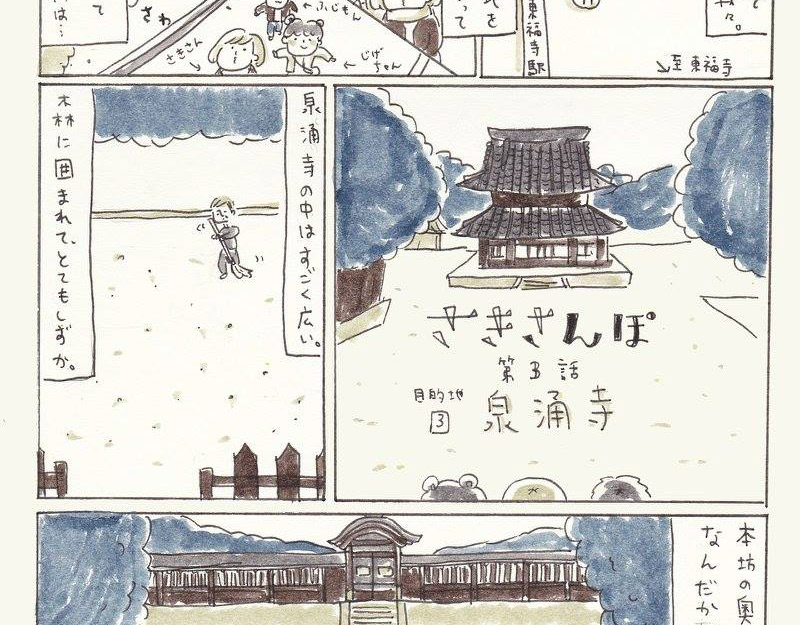 て
々。
至 東福寺
東福寺駅
を
って
ふじもん
じげちゃん
さきさん
さわ
て
は…
さきさんぽ
第3話
目的地
3
泉涌寺
泉涌寺の中はすごく広い。
森に囲まれて、とてもしずか。
本坊の奥
なんだか